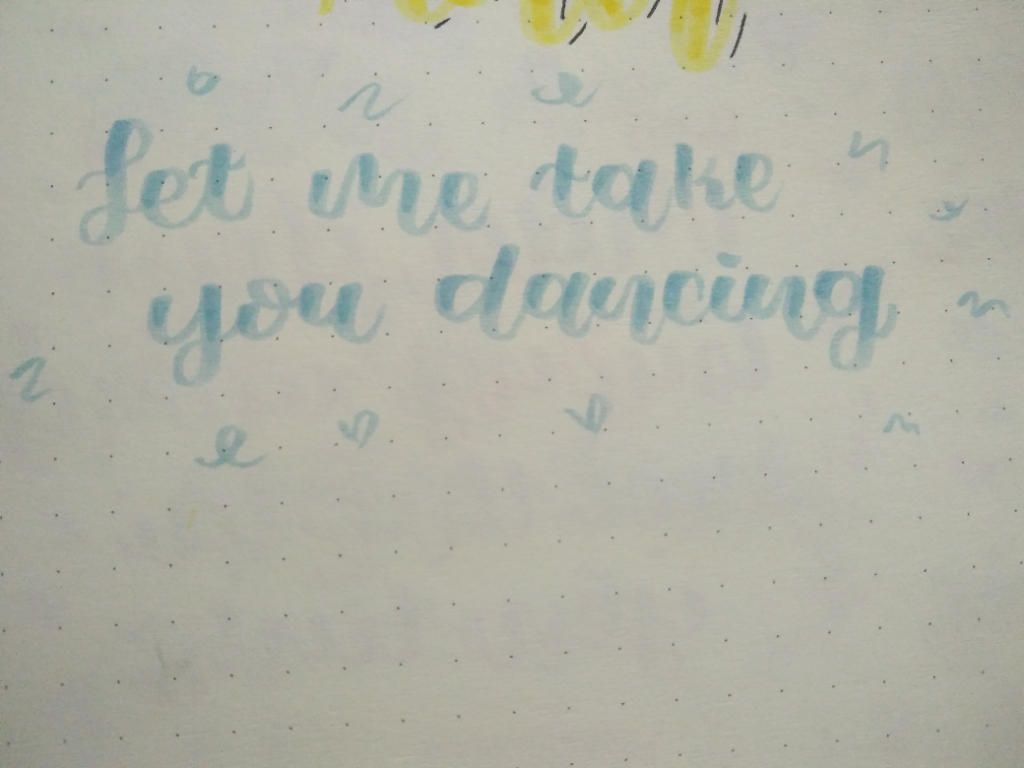 Let me take
you dancing